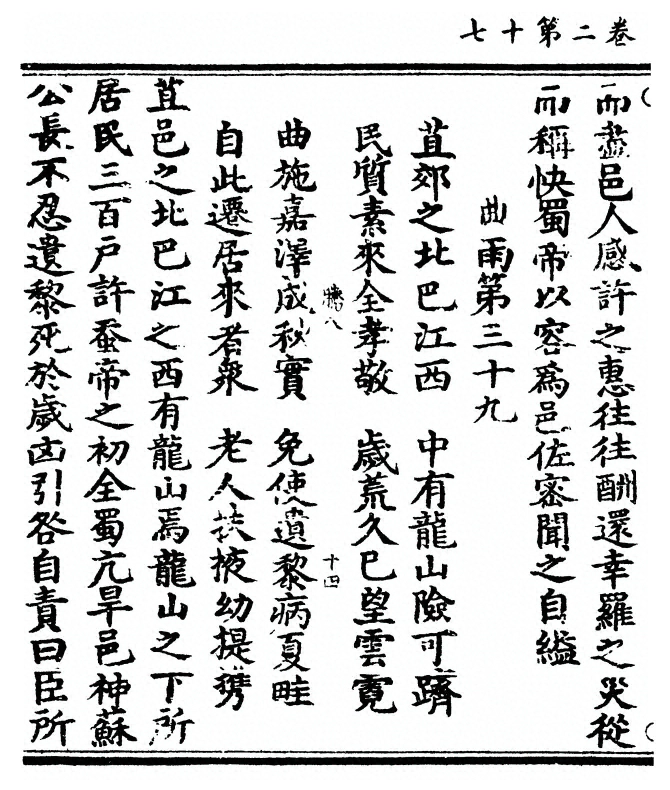 卷二第十七
而盡邑人感許之惠往往酬還幸羅之災從
而稱快蜀帝以容爲邑佐密聞之自縊
曲雨第三十九
苴郊之北巴江西　中有龍山險可躋
民質素來全孝敬　歲荒久已望雲霓
曲施嘉澤成秋實　免使遺黎病夏畦
自此遷居來者衆　老人扶掖幼提㩗
苴邑之北巴江之西有龍山焉龍山之下所
居民三百戸許蚕帝之初全蜀亢旱邑神蘇
公長不忍遺黎死於歲凶引咎自責曰臣所
十四